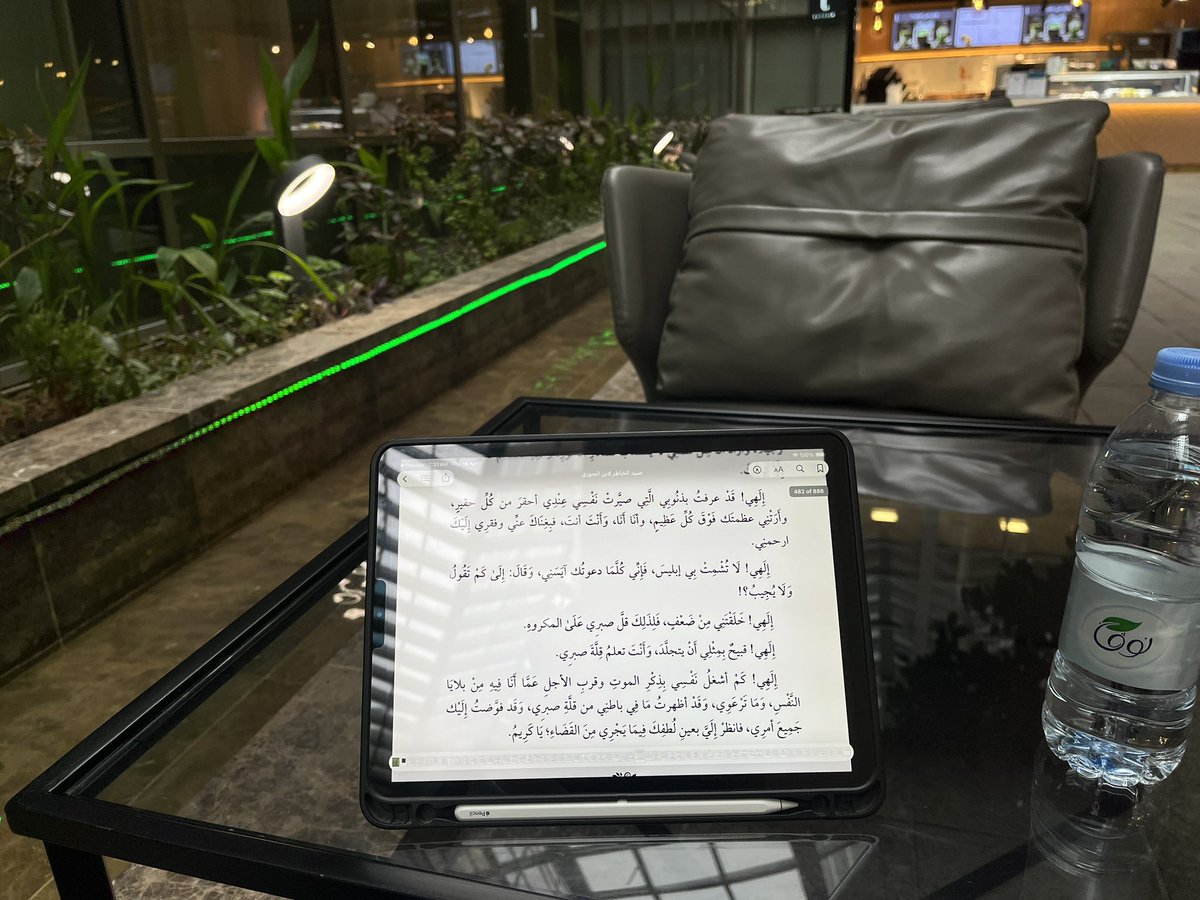 7:33 AM
100%
صيد الخاطر لابن الجوزي
AA
482 of 888
إِلَهِي! قَدْ عرفتُ بذنُوبِي الَّتِي صيَّرتْ نَفْسِي عِنْدِي أحقرَ من كُلِّ حقيرٍ،
وأَرَتْنِي عظمتَك فَوْقَ كُلِّ عَظِيمٍ، وأنَا أنَا، وَأَنْتَ أنتَ، فبِغِنَاكَ عنِّي وفقرِي إلَيْكَ
ارحمنِي.
إِلَهِي! لَا تُشْمِتْ بِي إبليسَ، فَإِنِّي كُلَّمَا دعوتُك آيَسَنِي، وَقَالَ: إلَىٰ كَمْ تَقُولُ
وَلَا يُجِيبُ؟!
إِلَهِي! خَلَقْتَنِي مِنْ ضَعْفٍ، فَلِذَلِكَ قلَّ صبرِي عَلَىٰ المكروهِ.
إِلَهِي! قبيحٌ بِمِثْلِي أَنْ يتجلَّدَ، وَأَنْتَ تعلمُ قِلَّةَ صبرِي.
إِلَهِي! كَمْ أشغلُ نَفْسِي بِذِكْرِ الموتِ وقربِ الأجلِ عَمَّا أَنَا فِيهِ مِنْ بلايَا
النَّفْسِ، وَمَا تَرْعَوِي، وَقَدْ أظهرتُ مَا فِي باطنِي من قلَّةِ صبرِي، وَقَد فوَّضتُ إلَيْك
جَمِيعَ أمرِي، فانظرْ إِلَيَّ بعينِ لُطفِكَ فِيمَا يَجْرِي مِنَ القَضَاءِ؛ يَا كَرِيمُ.
Pencil
نوفا